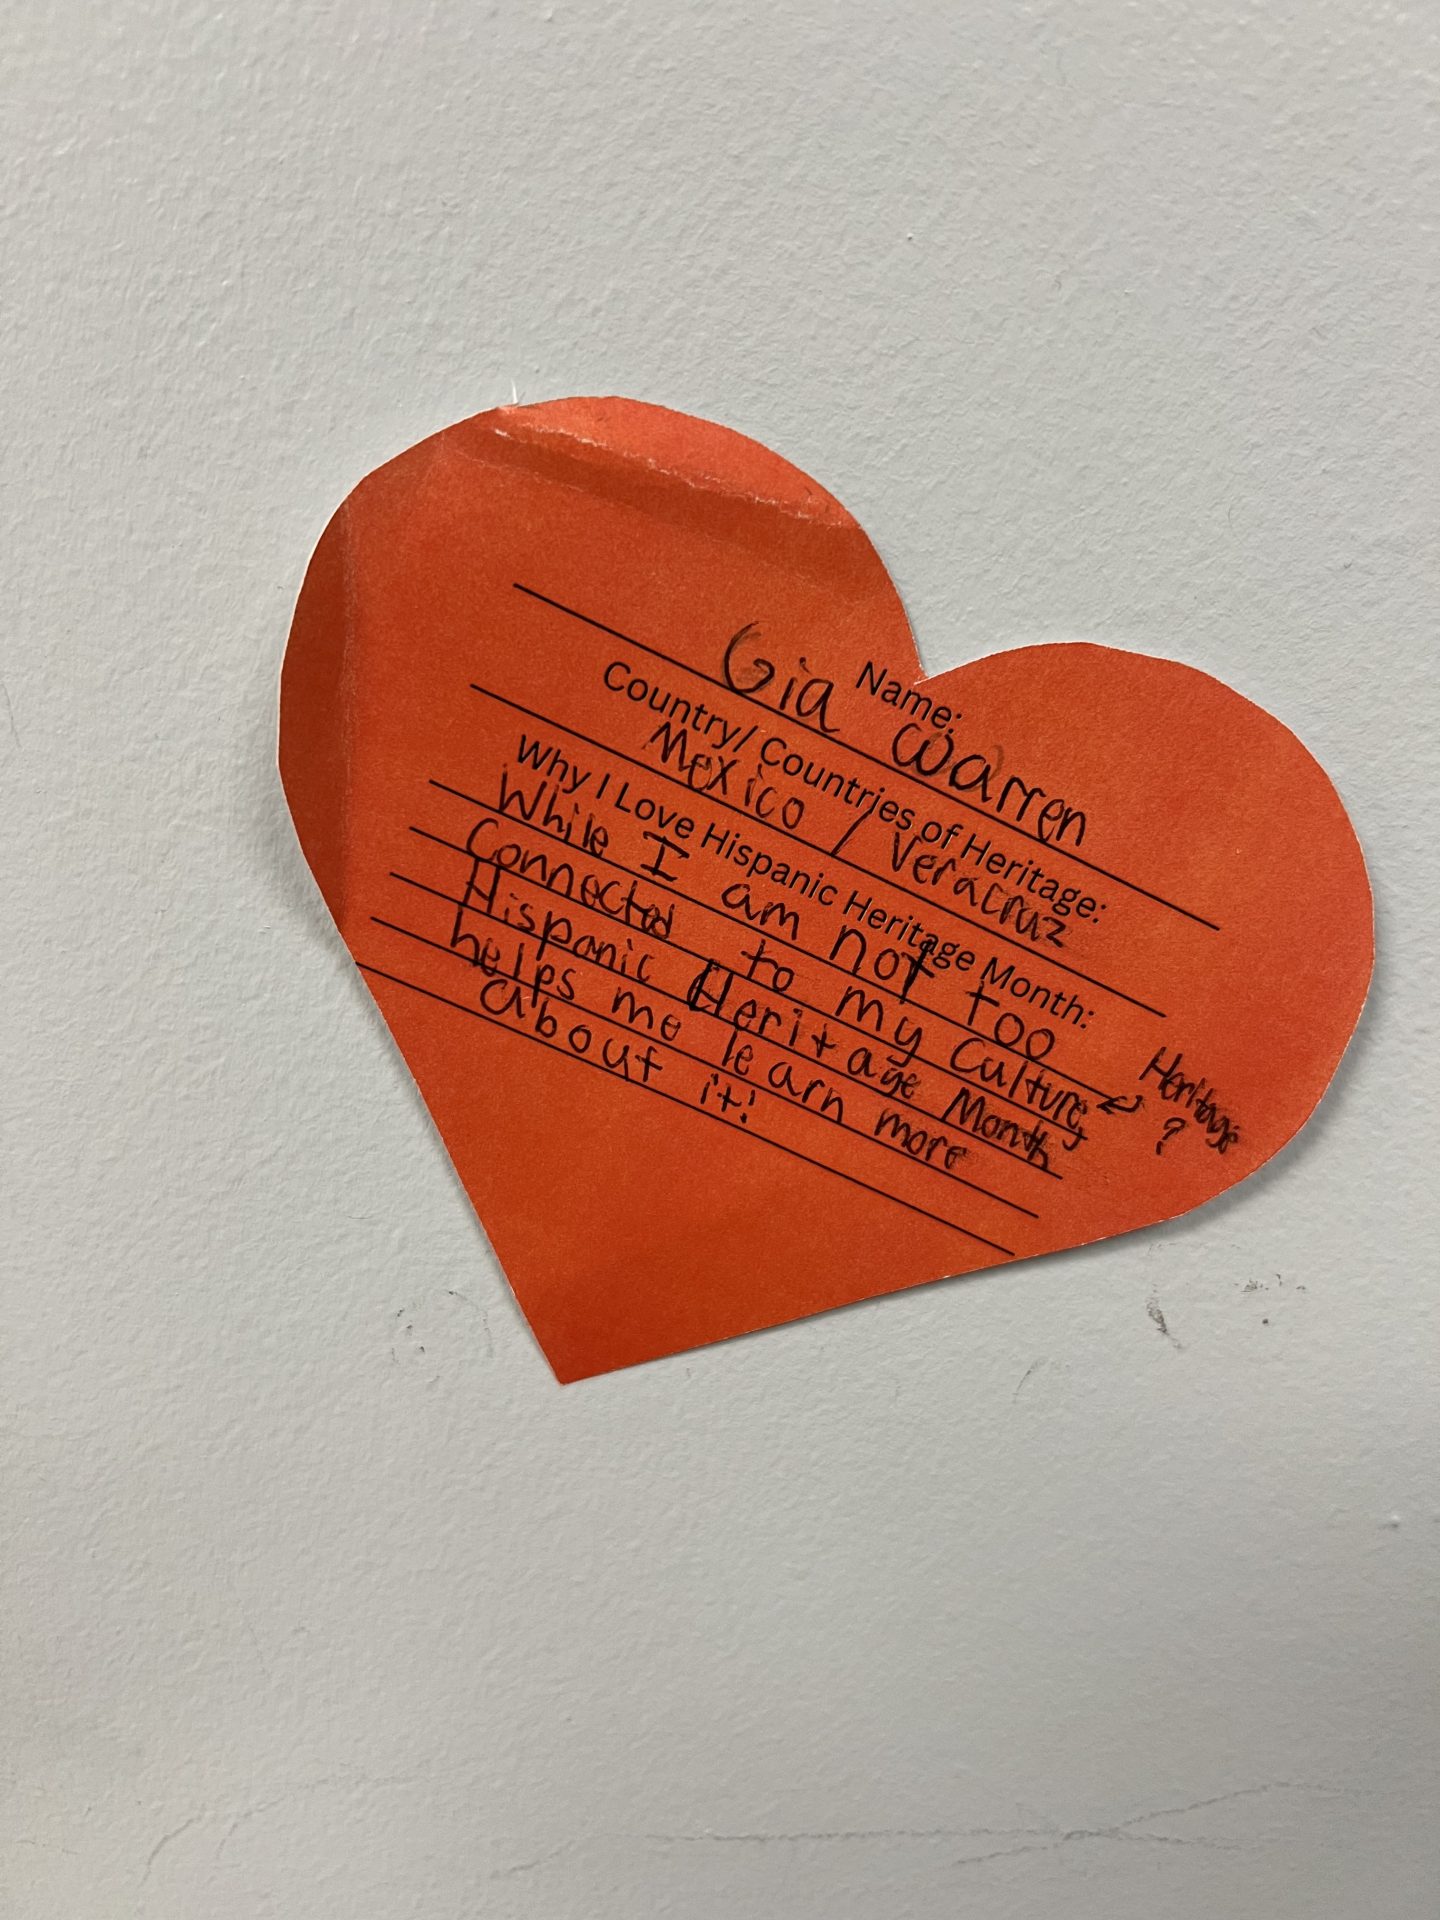 Name:
Gia Warren
Country/ Countries of Heritage:
Mexico / Veracruz
Why I Love Hispanic Heritage Month:
While I am not too
Connected to my Culture,
Heritage
?
Hispanic Heritage Month
helps me learn more
about it!